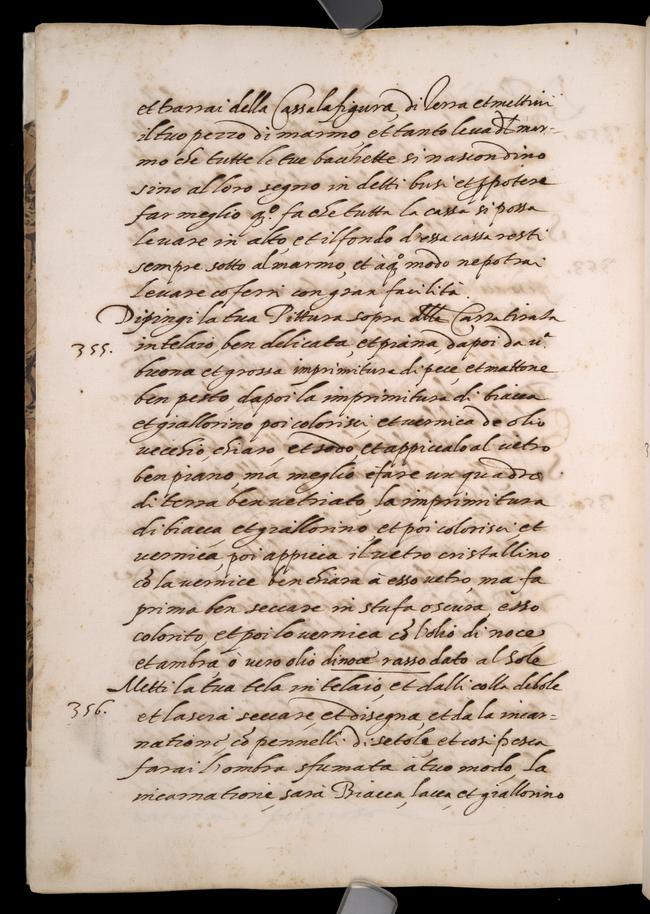 et trarrai della Cassa la figura di Terra et mettivi
il tuo pezzo di marmo, et tanto leva del mar=
mo che tutte le tue bacchette si nascondino
sino al loro segno in detti busi et p potere
far meglio q.º fa che tutta la cassa si possa
levare in alto, et il fondo d'essa cassa resti
sempre sotto al marmo, et à q.º modo ne potrai
levare co ferri con gran facilità.
Dipingi la tua Pittura sopra della Carta tirata
355. in telaio, ben delicata, et piana, da poi da uª
buona et grossa imprimitura di pece, et mattone
ben pesto, dapoi la imprimitura di biacca
et giallorino poi colorisci, et vernica de olio
vecchio chiaro, et sodo, et appiccalo al vetro
ben piano, ma meglio è fare un quadro
di terra ben vetriato, la imprimitura
di biacca et giallorino, et poi colorisci, et
vernica, poi appicca il vetro cristallino
cō la vernice ben chiara à esso vetro, ma fa
prima ben seccare in stufa oscura esso
colorito, et poi lo vernica cō l'olio di noce
et ambra, ò vero olio di noce rassodato al Sole
Metti la tua tela in telaio, et dalli colla debole
356. et lascia seccare, et disegna, et da la incar=
natione cō pennelli di setole et cosi fresca
farai l'ombra sfumata à tuo modo, la
incarnatione sarà Biacca, lacca, et giallorino